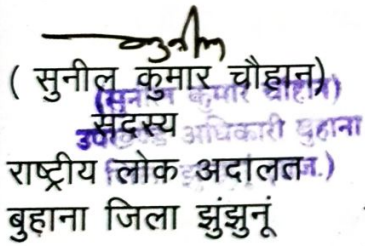 सुनील
( सुनील कुमार चौहान)
(सुनील कुमार चौहान)
सदस्य
उपखण्ड अधिकारी बुहाना
राष्ट्रीय लोक अदालत
ज.)
बुहाना जिला झुंझुनूं